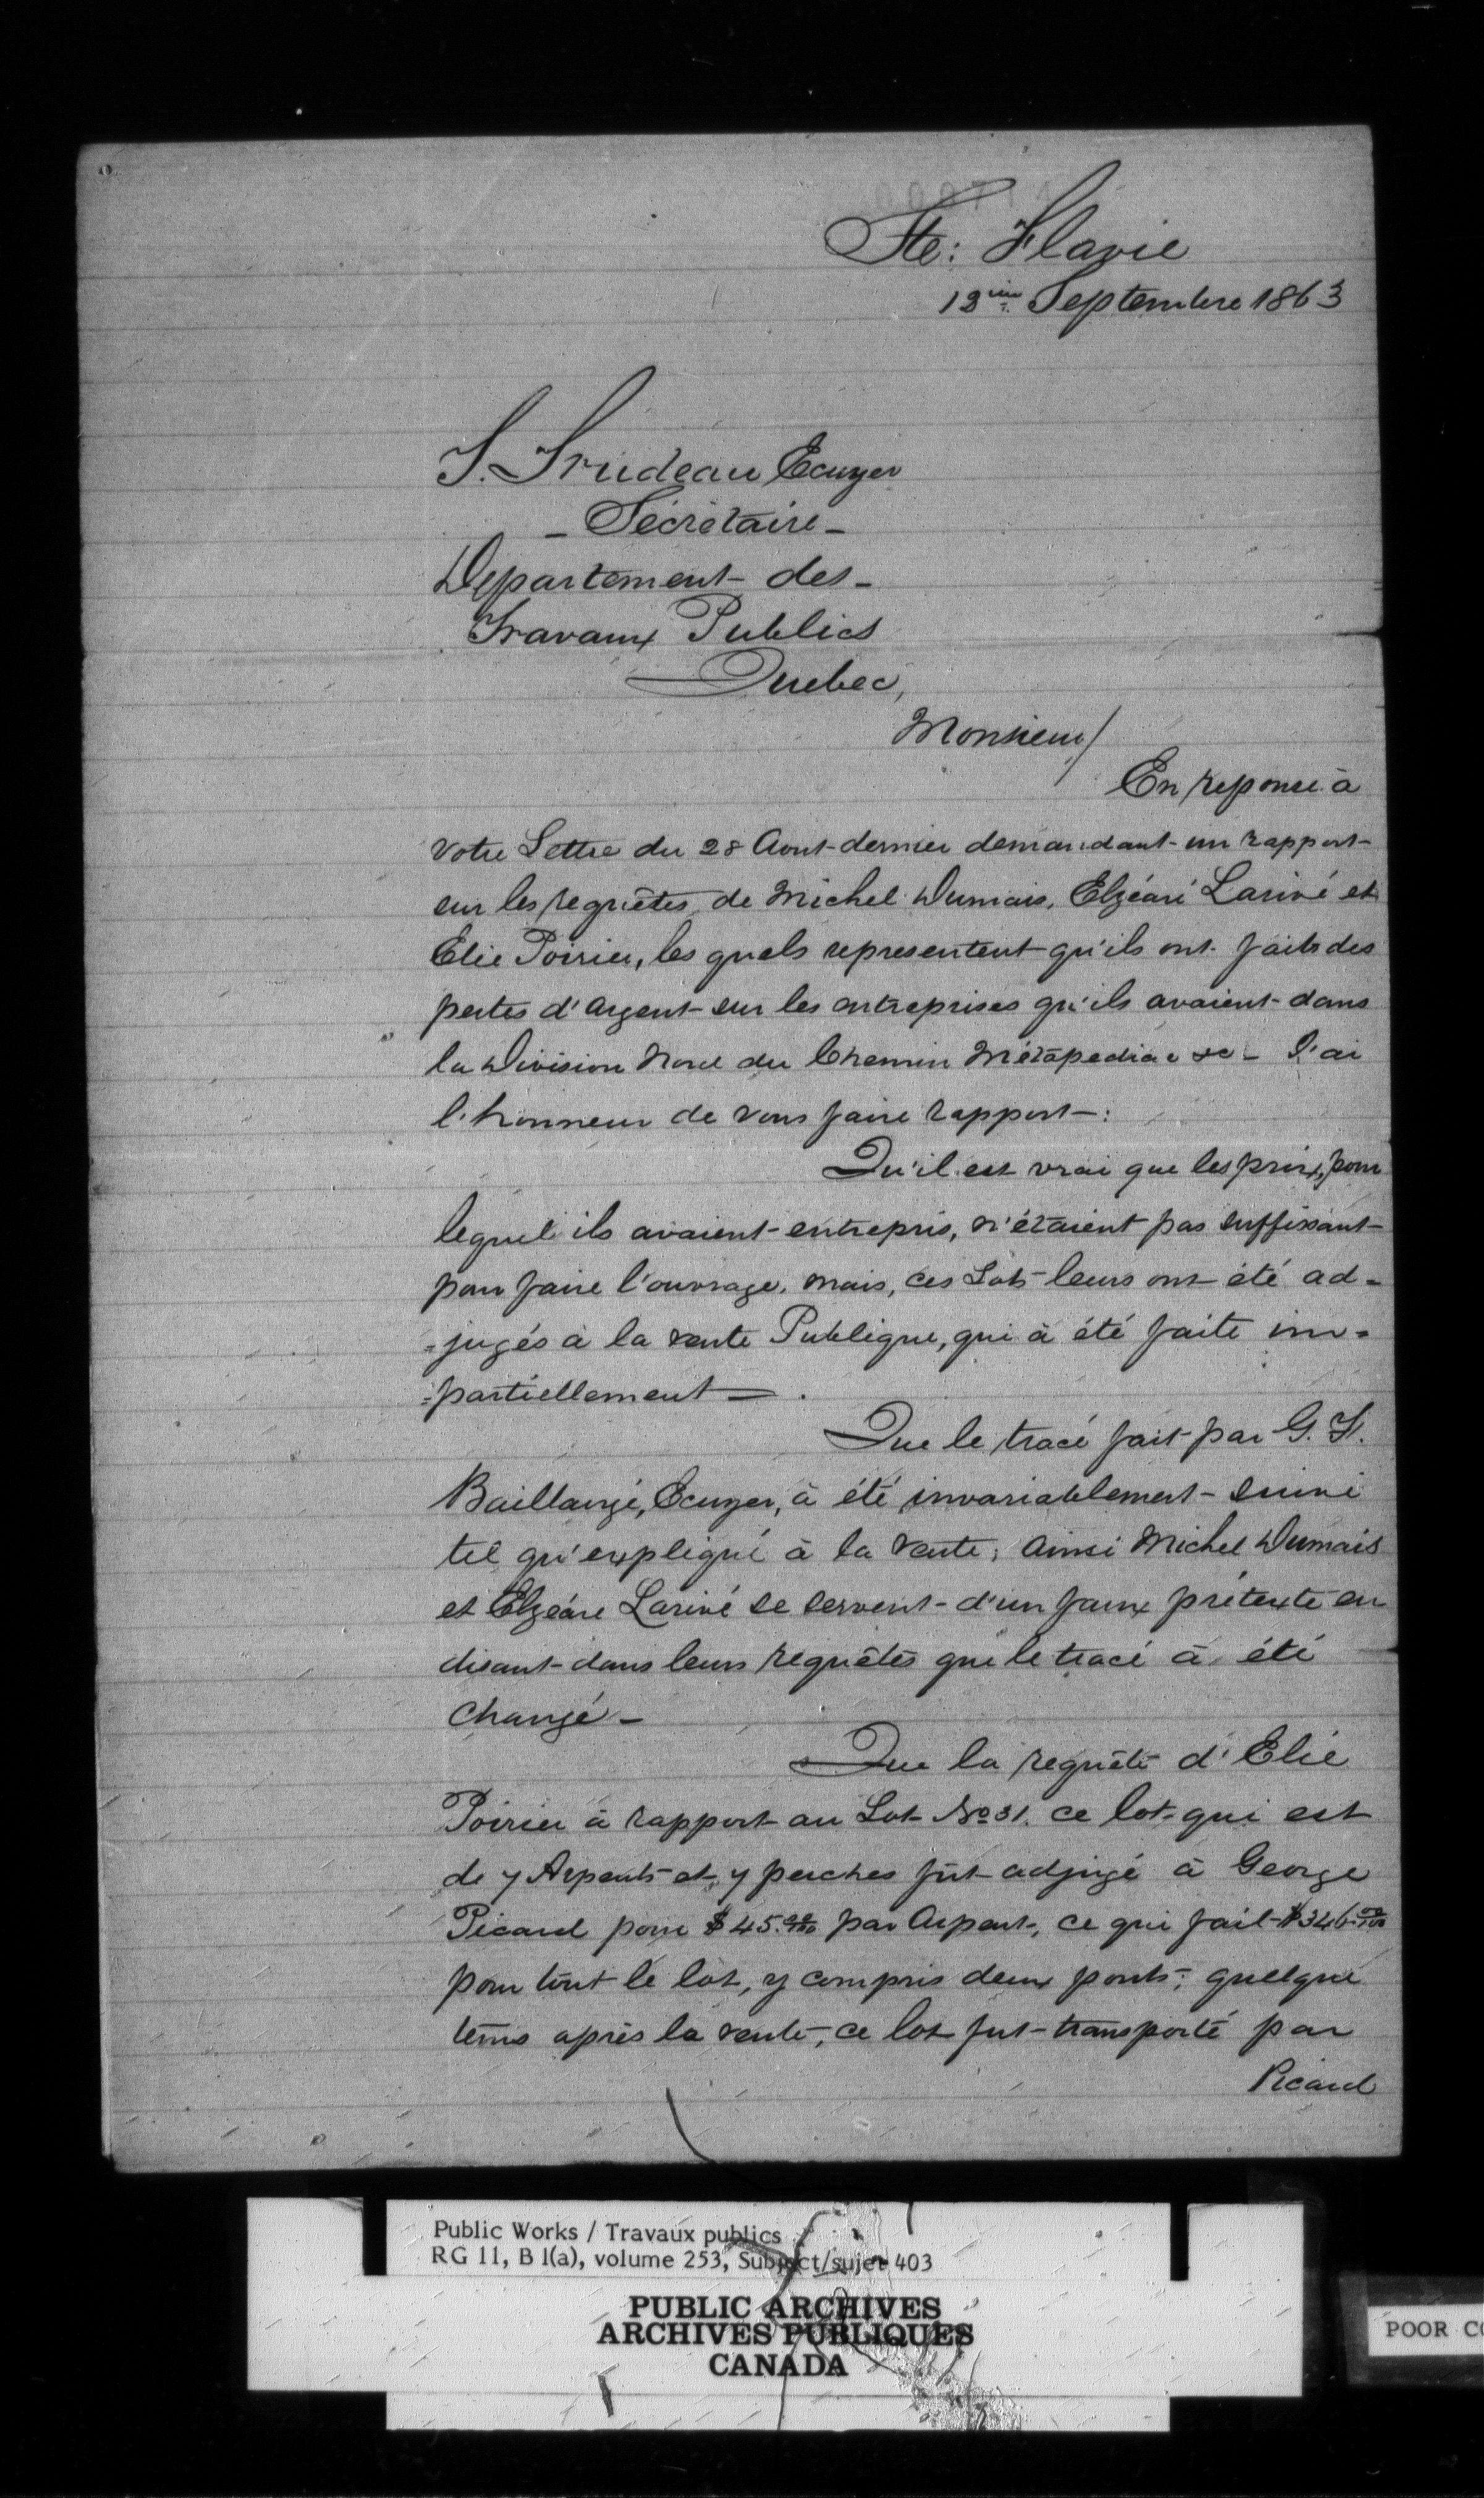 Ste: Flavie
12ième Septembre 1863
T. Trudeau Ecuyer
- Sécrétaire -
Departement des -
Travaux Publics
Quebec,
Monsieur/
En reponse à
votre Lettre du 28 Aout dernier demandant un rapport
sur les requêtes de Michel Dumais, Elzéar Larivé et
Elie Poirier, les quels representent qu'ils ont faits des
pertes d'Argent sur les entreprises qu'ils avaient dans
la Division Nord du Chemin Métapediac &c - J'ai
l'honneur de vous faire rapport:
Qu'il est vrai que les prix, pour
lequel ils avaient entrepris, n'étaient pas suffissant
pour faire l'ouvrage, mais, ces Lots leurs ont été ad=
=jugés à la vente Publique, qui à été faite im=
=partiellement.
Que le tracé fait par G. F.
Baillargé, Ecuyer, à été invariablement suivi
tel qu'expliqué à la vente; ainsi Michel Dumais
et Elzéare Larivé se servent d'un faux prétexte en
disant dans leurs requêtes que le tracé à été
changé -
Que la requête d'Elie
Poirier à rapport au Lot No 31. ce lot qui est
de 7 Arpents et 7 perches fût adjugé à George
Picard pour $45.00/100 par Arpent, ce qui fait $346 50/100
pour tout le lot, y compris deux ponts; quelque
tems après la vente, ce lot fut transporté par
Picard
Public Works / Travaux publics
RG 11, B 1(a), volume 253, Subject/sujet 403
PUBLIC ARCHIVES
ARCHIVES PUBLIQUES
CANADA
POOR CO